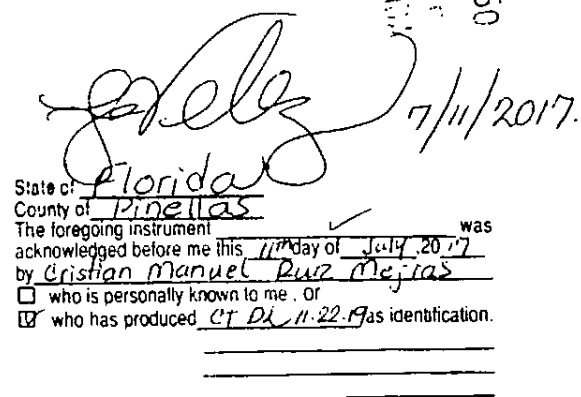 7/11/2017.
State of Florida
County of Pinellas
The foregoing instrument ✓ was
acknowledged before me this 11th day of July, 2017
by Cristian Manuel Ruiz Mejias
☐ who is personally known to me, or
☑ who has produced CT DL 11.22.19 as identification.